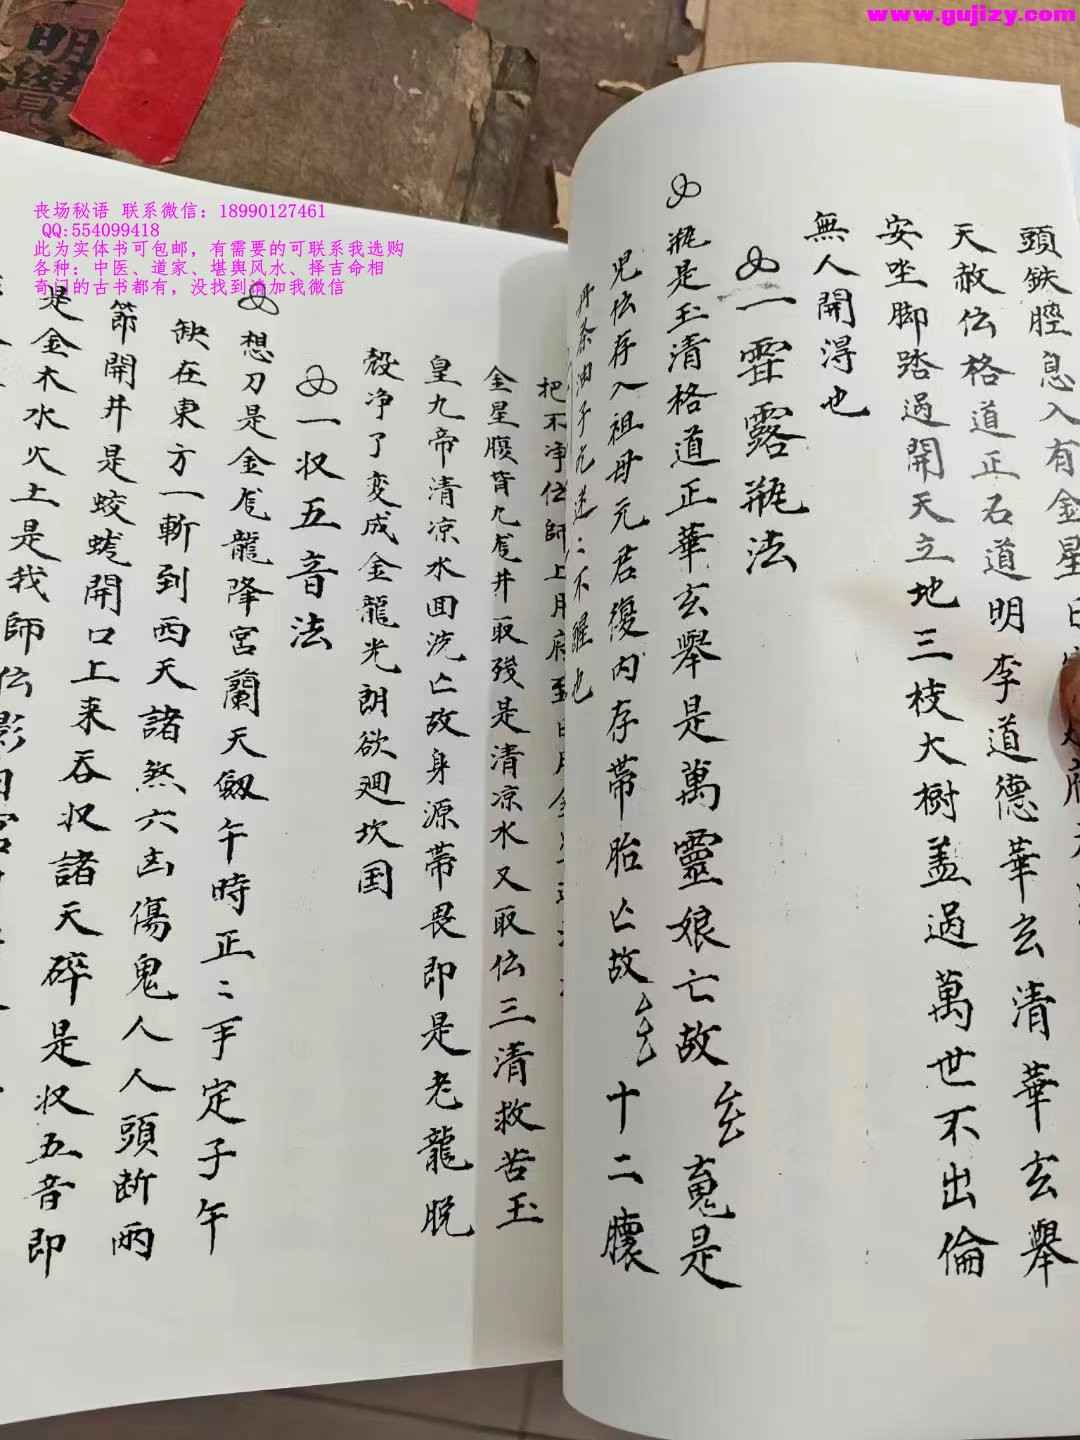 www.gujizy.com
丧场秘语 联系微信：18990127461
QQ:554099418
此为实体书可包邮，有需要的可联系我选购
各种：中医、道家、堪舆风水、择吉命相
奇门的古书都有，没找到请加我微信
頭鉄腔息入有金星
天赦伝格道正石道明李道德華玄清華玄舉
安坐脚踏過開天立地三枝大樹盖過萬世不出倫
無人開得也
一霊露瓶法
瓶是玉清格道正華玄舉是萬靈娘亡故 魂是
児伝存入祖母元君復内存帯胎亡故 十二懐
不醒也
把不净伝師上月府至日月金
金星腹背九竜井取残是清凉水又取伝三清救苦玉
皇九帝清凉水囬洗亡故身源帯畏即是老龍脱
殼净了変成金龍光朗欲廻坎国
一収五音法
想刀是金竜龍降宮蘭天劔午時正〻手定子午
缺在東方一斬到西天諸煞六凶傷鬼人人頭断兩
節開井是蛟蛇開口上来吞収諸天碎是収五音即
是金木水火土是我師伝影